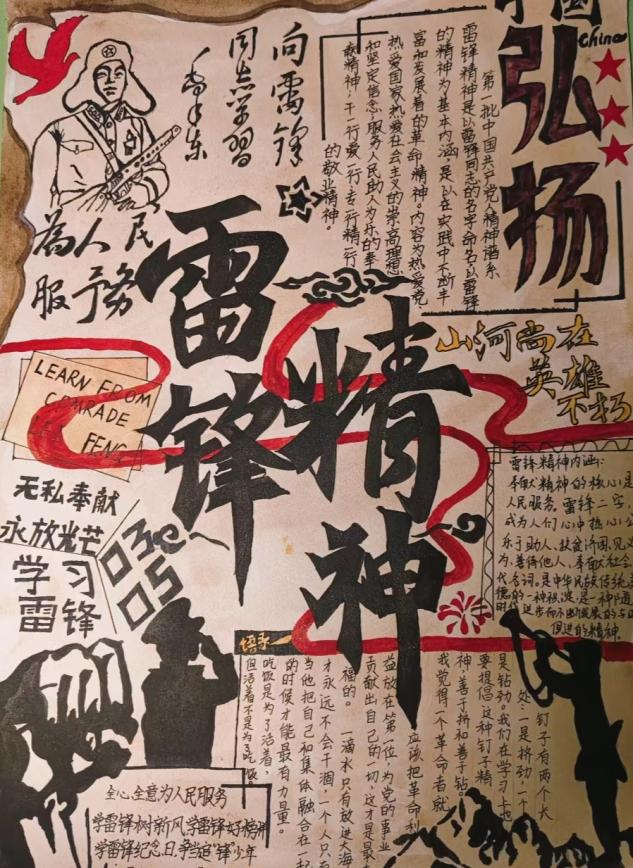 中国
China
弘扬
向雷锋
同志学习
毛泽东
第一批中国共产党精神谱系
雷锋精神是以雷锋同志的名字命名以雷锋
的精神为基本内涵是以在实践中不断丰
富和发展着的革命精神。内容为热爱党
热爱国家热爱社会主义的崇高理想
和坚定信念,服务人民助人为乐的奉
献精神,干一行爱一行专一行精一行
的敬业精神。
为人民
服务
雷锋
精神
山河尚在
英雄
不朽
LEARN FROM
COMRADE
LEI FENG
无私奉献
永放光芒
学习
雷锋
03
05
雷锋精神内涵:
奉献精神的核心是
人民服务,雷锋二字,
成为人们心中热心
乐于助人、扶贫济困、见义
为、善待他人、奉献社会
代名词。是中华民族传统
德的一种
时代进步而不断发展的
但进的精神。
钉子有两个长
处:一是挤劲,一个
是钻劲。我们在学习上也
要提倡这种钉子精
神,善于挤和善于钻。
我觉得一个革命者就
应该把革命利
益放在第一位,为党的事业
贡献出自己的一切,这才是最
福的。一滴水只有放进大海
才永远不会干涸一个人只有
当他把自己和集体融合在一
的时候才能最有力量。
吃饭是为了活着,
但活着不是为了吃饭。
全心全意为人民服务
学雷锋树新风,学雷锋好榜样
学雷锋纪念日,争当"锋"少年